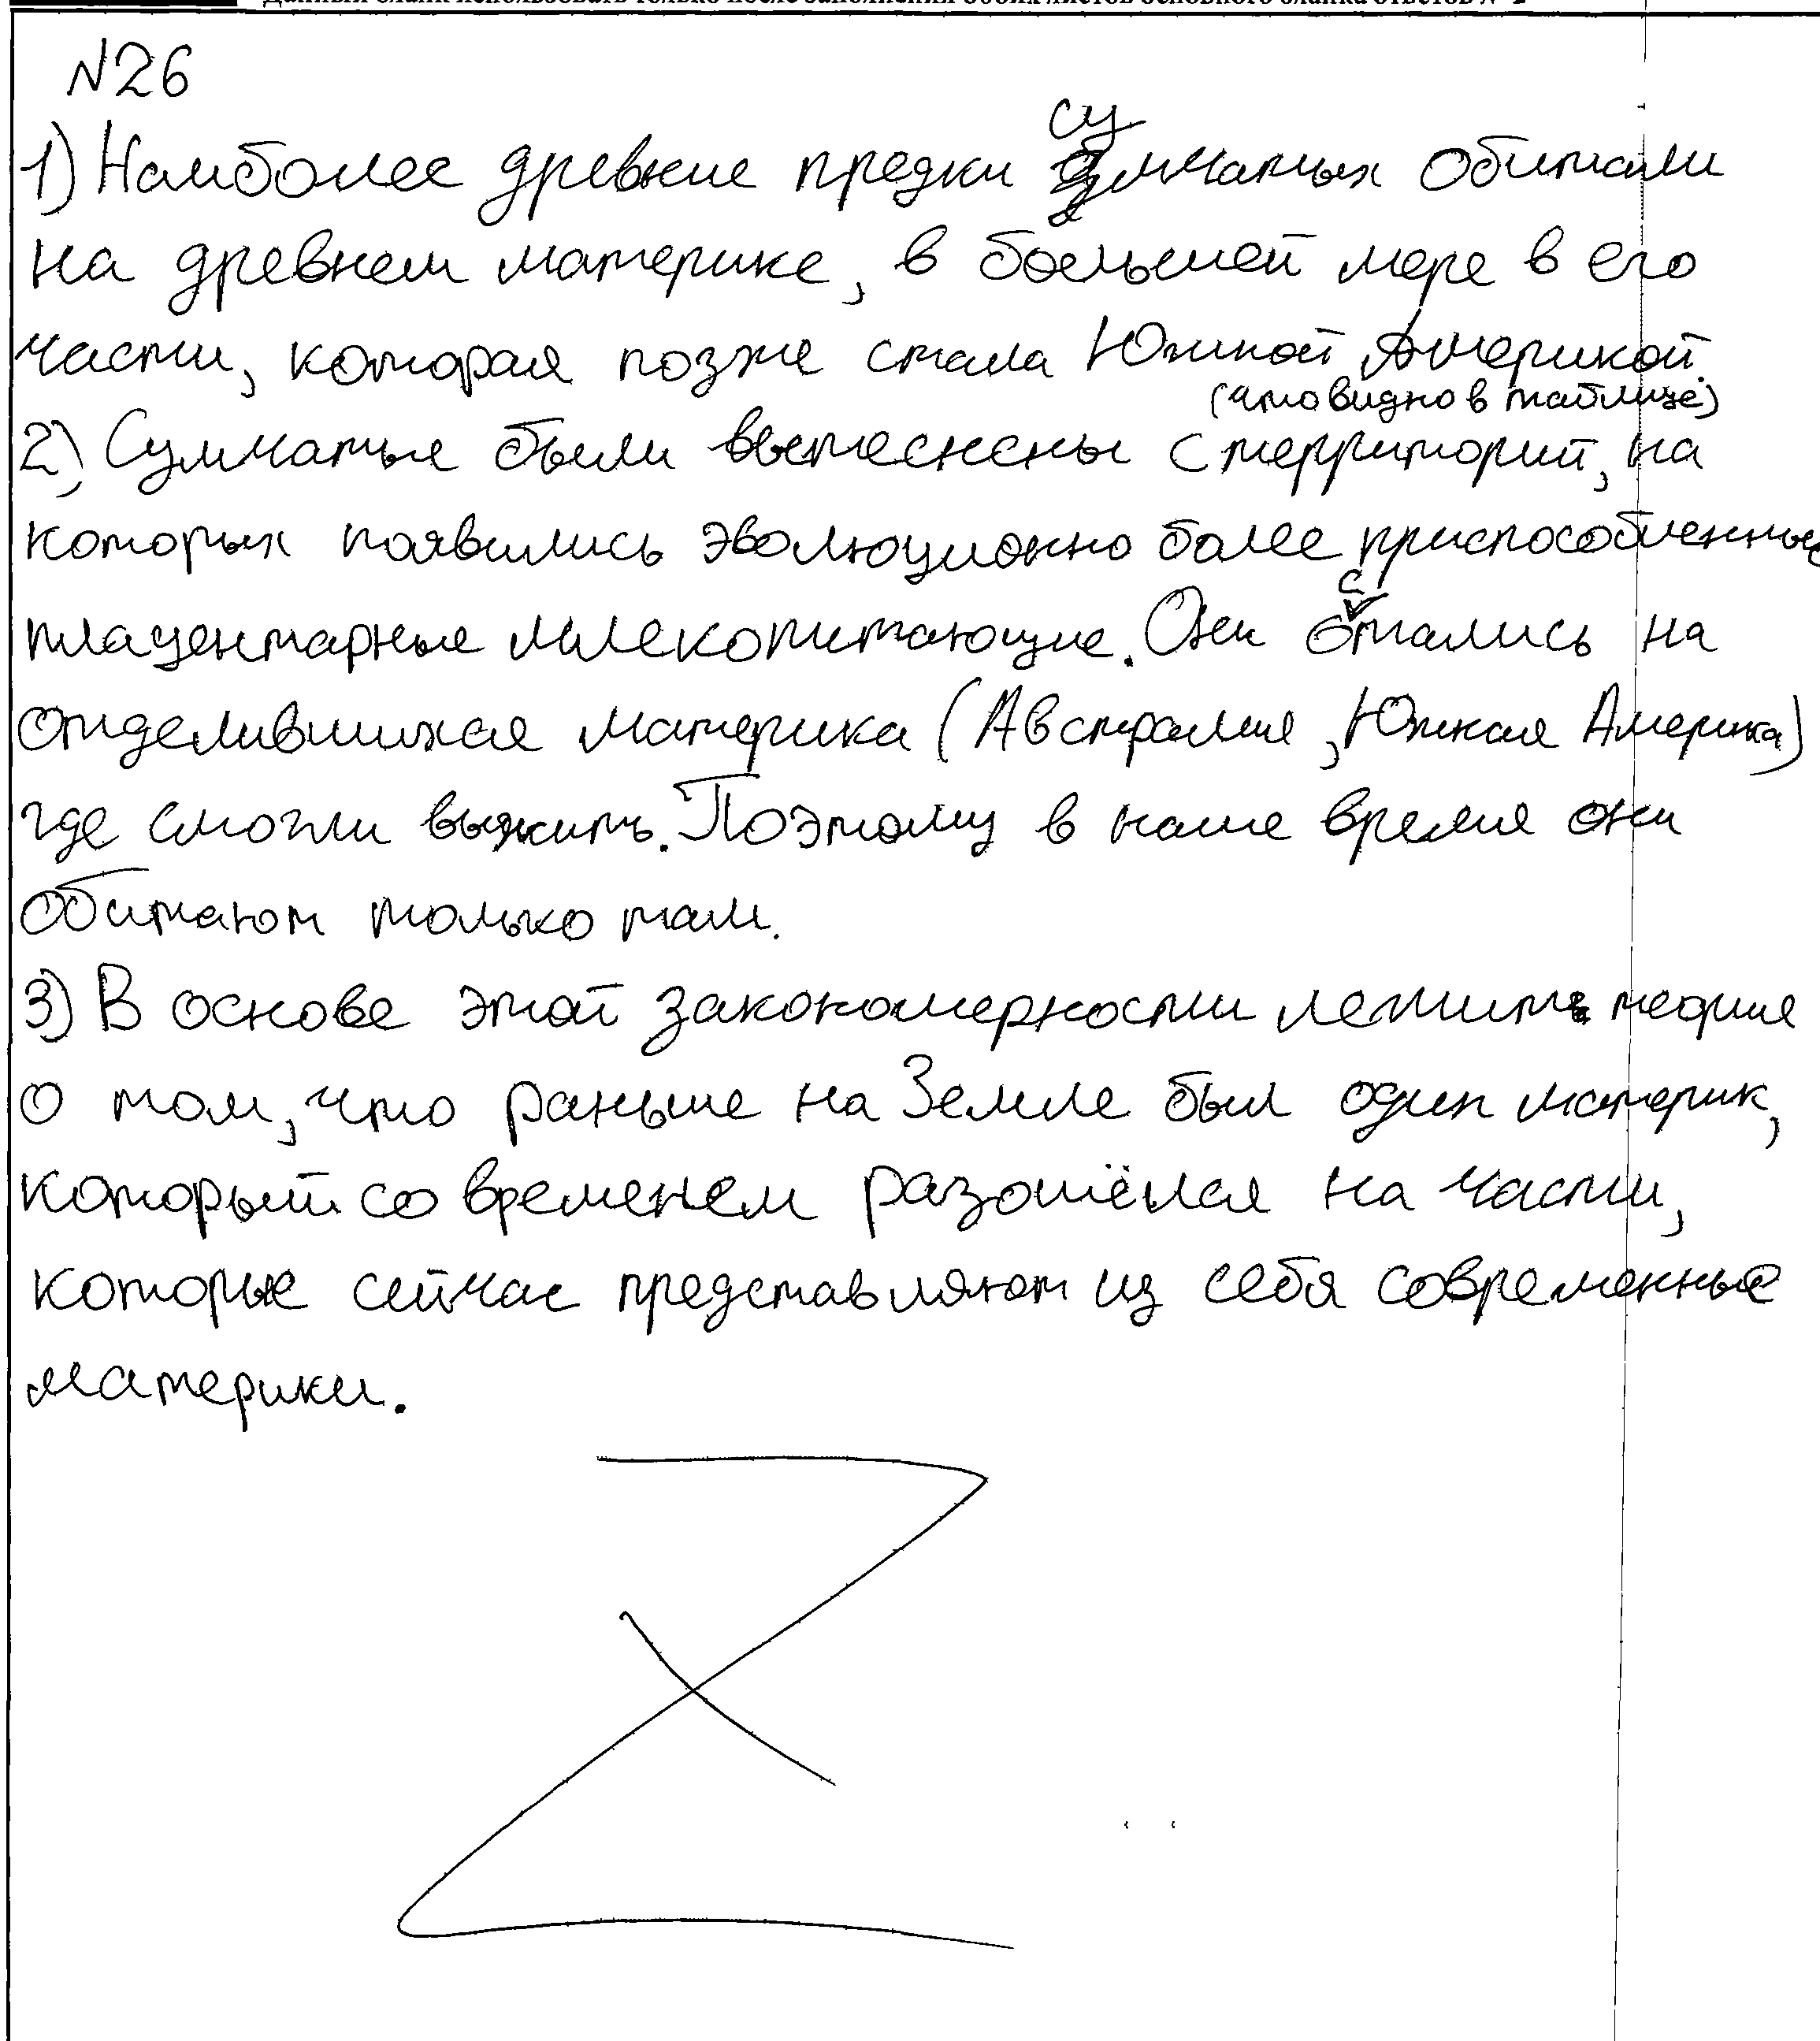 Данный бланк использовать только после заполнения обоих листов основного бланка ответов № 2
№26
1) Наиболее древние предки сумчатых обитали
на древнем материке, в большей мере в его
части, которая позже стала Южной Америкой.
(что видно в таблице)
2) Сумчатые были вытеснены с территорий, на
которых появились эволюционно более приспособленные
плацентарные млекопитающие. Они остались на
отделившихся материка (Австралия, Южная Америка)
где смогли выжить. Поэтому в наше время они
обитают только там.
3) В основе этой закономерности лежит теория
о том, что раньше на Земле был один материк,
который со временем разошёлся на части,
которые сейчас представляют из себя современные
материки.